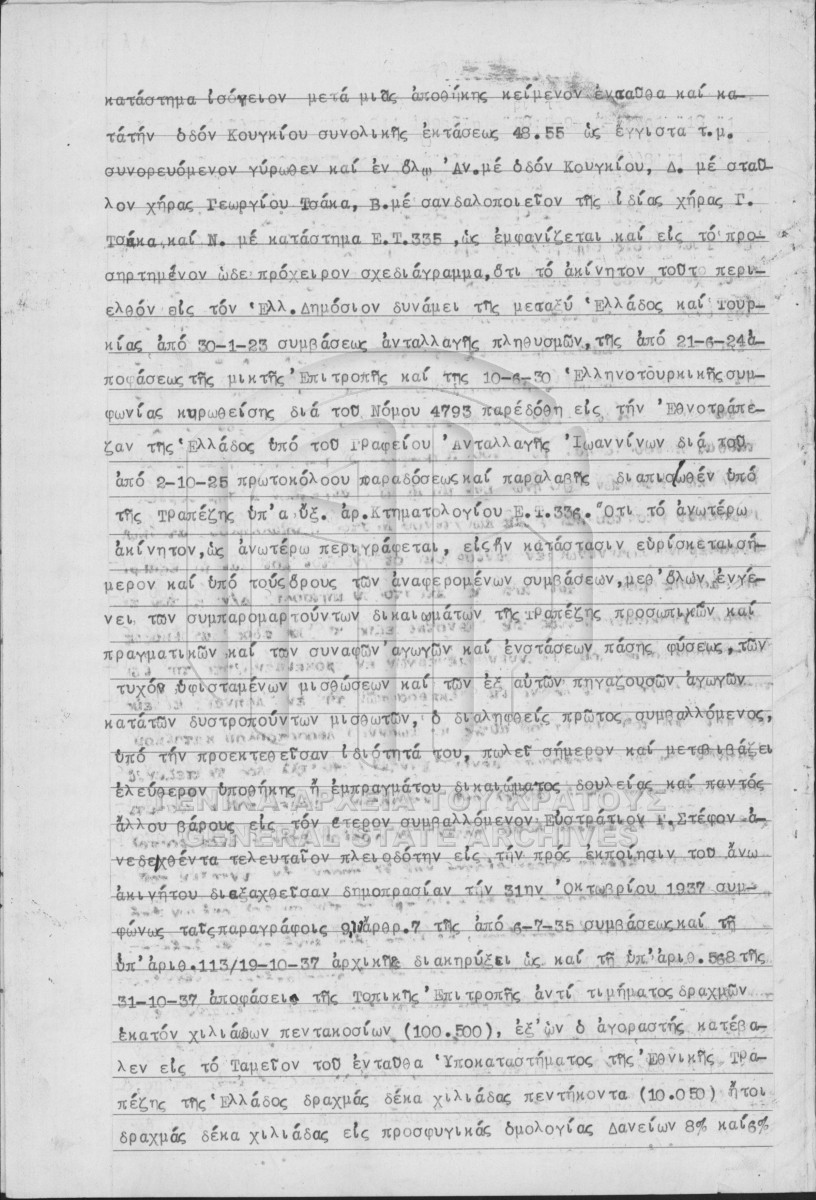 κατάστημα ἰσόγειον μετά μιᾶς ἀποθήκης κείμενον ἐνταῦθα καί κα-
τάτήν ὁδόν Κουγκίου συνολικῆς ἐκτάσεως 48.55 ὡς ἔγγιστα τ.μ.
συνορευόμενον γύρωθεν καί ἐν ὅλῳ Ἀν.μέ ὁδόν Κουγκίου, Δ. μέ σταῦ-
λον χήρας Γεωργίου Τσάκα, Β.μέ σανδαλοποιεῖον τῆς ἰδίας χήρας Γ.
Τσάκα καί Ν. μέ κατάστημα Ε.Τ.335 ,ὡς ἐμφανίζεται καί εἰς τό προ-
σηρτημένον ὧδε πρόχειρον σχεδιάγραμμα,ὅτι τό ἀκίνητον τοῦτο περι-
ελθόν εἰς τόν Ἑλλ.Δημόσιον δυνάμει τῆς μεταξύ Ἑλλάδος καί Τουρ-
κίας ἀπό 30-1-23 συμβάσεως ἀνταλλαγῆς πληθυσμῶν,τῆς ἀπό 21-6-24ἀ-
ποφάσεως τῆς μικτῆς Ἐπιτροπῆς καί τῆς 10-6-30 Ἑλληνοτουρκικῆς συμ-
φωνίας κυρωθείσης διά τοῦ Νόμου 4793 παρέδόθη εἰς τήν Ἐθνοτράπε-
ζαν τῆς Ἑλλάδος ὑπό τοῦ Γραφείου Ἀνταλλαγῆς Ἰωαννίνων διά τοῦ
ἀπό 2-10-25 πρωτοκόλοου παραδόσεως καί παραλαβῆς διαπιστωθέν ὑπό
τῆς Τραπέζης ὑπ'α ὔξ. ἀρ.Κτηματολογίου Ε.Τ.336. Ὅτι τό ἀνωτέρω
ἀκίνητον,ὡς ἀνωτέρω περιγράφεται, εἰς ἥν κατάστασιν εὑρίσκεται σή-
μερον καί ὑπό τούς ὅρους τῶν ἀναφερομένων συμβάσεων,μεθ'ὅλων ἐνγέ-
νει τῶν συμπαρομαρτούντων δικαιωμάτων τῆς Τραπέζης προσωπικῶν καί
πραγματικῶν καί τῶν συναφῶν ἀγωγῶν καί ἐνστάσεων πάσης φύσεως,τῶν
τυχόν ὑφισταμένων μισθώσεων καί τῶν ἐξ αὐτῶν πηγαζουσῶν ἀγωγῶν
κατάτῶν δυστροπούντων μισθωτῶν, ὁ διαληφθείς πρῶτος συμβαλλόμενος,
ὑπό τήν προεκτεθεῖσαν ἰδιότητά του, πωλεῖ σήμερον καί μεταβιβάζει
ἐλεύθερον ὑποθήκης ἤ ἐμπραγμάτου δικαιώματος δουλείας καί παντός
ἄλλου βάρους εἰς τόν ἕτερον συμβαλλόμενον Εὐστράτιον Γ.Στέφον ἀ-
νεδεχθέντα τελευταῖον πλειοδότην εἰς τήν πρός ἐκποίησιν τοῦ ἄνω
ἀκινήτου διεξαχθεῖσαν δημοπρασίαν τήν 31ην Ὀκτωβρίου 1937 συμ-
φώνως ταῖς παραγράφοις 9, ἄρθρ.7 τῆς ἀπό 6-7-35 συμβάσεως καί τῇ
ὑπ'ἀριθ.113/19-10-37 ἀρχικῇ διακηρύξει ὡς καί τῇ ὑπ'ἀριθ.568 τῆς
31-10-37 ἀποφάσει τῆς Τοπικῆς Ἐπιτροπῆς ἀντί τιμήματος δραχμῶν
ἑκατόν χιλιάδων πεντακοσίων (100.500), ἐξ'ὧν ὁ ἀγοραστής κατέβα-
λεν εἰς τό Ταμεῖον τοῦ ἐνταῦθα Ὑποκαταστήματος τῆς Ἐθνικῆς Τρα-
πέζης τῆς Ἑλλάδος δραχμάς δέκα χιλιάδας πεντήκοντα (10.050) ἤτοι
δραχμάς δέκα χιλιάδας εἰς προσφυγικάς ὁμολογίας Δανείων 8% καί 6%
ΓΕΝΙΚΑ ΑΡΧΕΙΑ ΤΟΥ ΚΡΑΤΟΥΣ
GENERAL STATE ARCHIVES